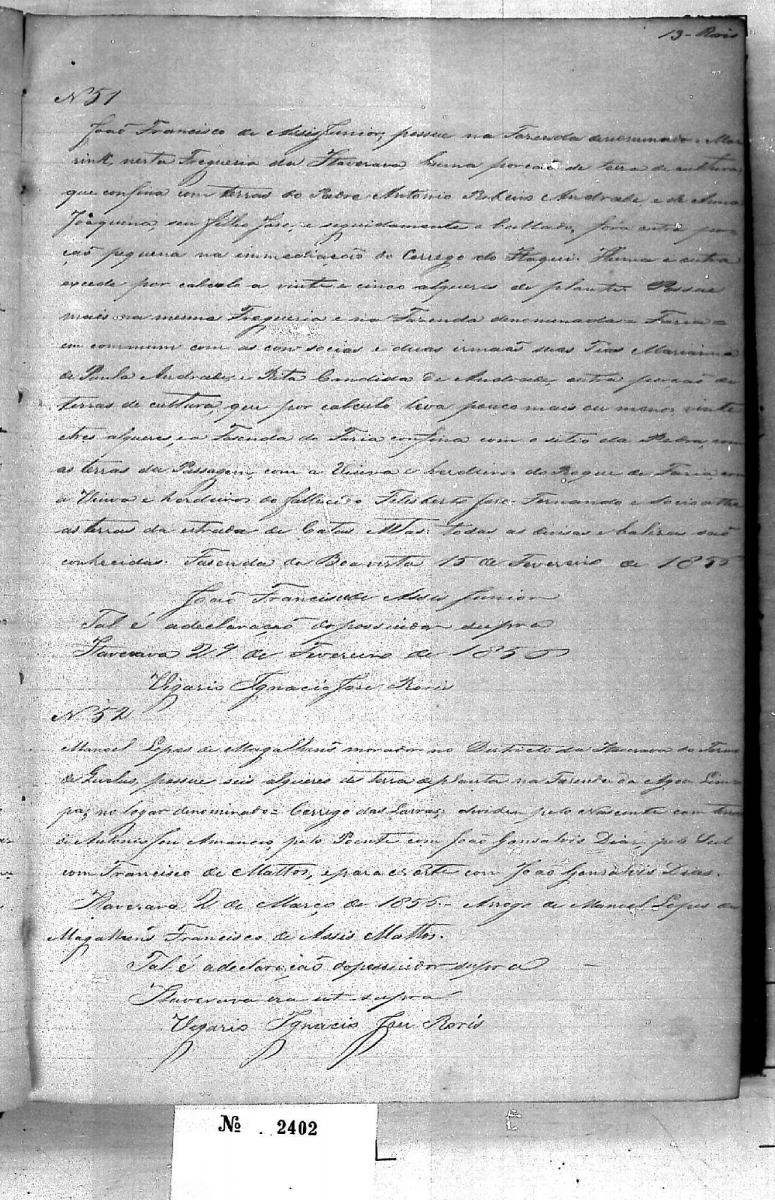 13 - Roris
Nº 51
João Francisco de Assis Junior, possue na Fazenda denominada = Mar
rink, nesta Freguesia da Itaverava huma porcaõ de terra de cultura,
que confina com terras do Padre Antonio Andrade e de Anna
Joaquina seu filho Jose, e seguidamente o vallado, fora outra por
çaõ pequena na immediação do Corrego do Itaqui. Huma e outra
excede por calculo a vinte e cinco alqueres de planta. Possue
mais na mesma Freguesia e na Fazenda denominada = Faria =
em commum com as con socias e duas irmaãs suas Tias Marianna
de Paula Andrade, e Rita Candida de Andrade, outra porcaõ de
terras de cultura, que por calculo leva pouco mais ou menos vinte
e tres alqueres, e a Fasenda do Faria confina com o sitio da Pedra, com
as terras da Passagem, com a Viuva e herdeiros do Roque de Faria, com
a Viuva e herdeiros do fallecido Felisberto Jose Fernando e Socio athe
as terras da estrada de Catas Altas: todas as divisas e balisas saõ
conhecidas. Fasenda da Boavista 15 de Fevereiro de 1855
João Francisco de Assis Junior
Tal é a declaração do possuidor supra
Itaverava 27 de Fevereiro de 1855
Vigario Ignacio Jose Roris
Nº 52
Manoel Lopes de Magalhens morador no Destricto da Itaverava do Termo
de Queluz, possue seis alqueres de terra de planta na Fasenda da Agoa Lim
pa, no logar denominado = Corrego das Lavras; divide pelo Nascente com terras
de Antonio Jose Amancio, pelo Poente com João Gonsalvis Dias, pelo Sul
com Francisco de Mattos, e para o Norte com João Gonsalvis Dias.
Itaverava 2 de Março de 1855 - Arogo de Manoel Lopes de
Magalhens Francisco de Assis Mattos.
Tal é a declaração do possuidor supra
Itaverava era ut supra
Vigario Ignacio Jose Roris
Nº 2402